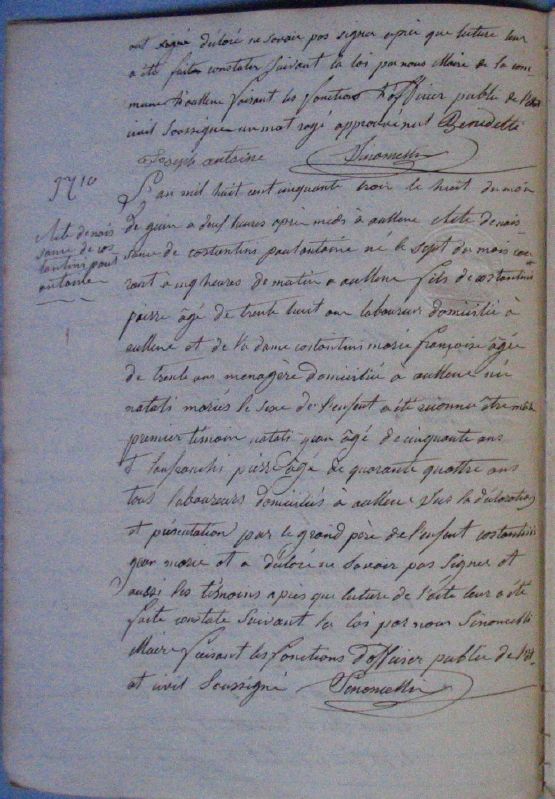 ont signé déclaré ne savoir pas signer aprè que luture leur
a été faite constater suivant la loi par nous Maire de la com
mune d'aullene faisant les fonctions d'officier public de l'état
civil soussigné un mot rayé approuvé nul Benedetti
Joseph antoine
Nº 10
L'an mil huit cent cinquante trois le huit du mois
de juin a deux heures apre midi à aullene Acte denais
sance de costantini paul antoine ne le sept du mois cou
rant à cinq heures de matin a aullene fils de costantini
pierre âgé de trente huit ans laboureur domicilié à
aullene et de la dame costantini marie françoise âgée
de trente ans menagère domiciliée a aullene née
natali mariés le sexe de l'enfant a été reconnu être
premier témoin natali jean âgé de cinquante ans
pierre âgé de quarante quattre ans
tous laboureurs domiciliés à aullene sur la déclaration
et présentation par le grand père de l'enfant costantini
jean marie et a déclaré ne savoir pas signer et
aussi les témoins apies que luture de l'écte leur a été
faite constate suivant la loi par nous
Maire faisant les fonctions d'officier public de l'ét
at civil soussigné
Acte de nais
sance de cos
tantini paul
antoine